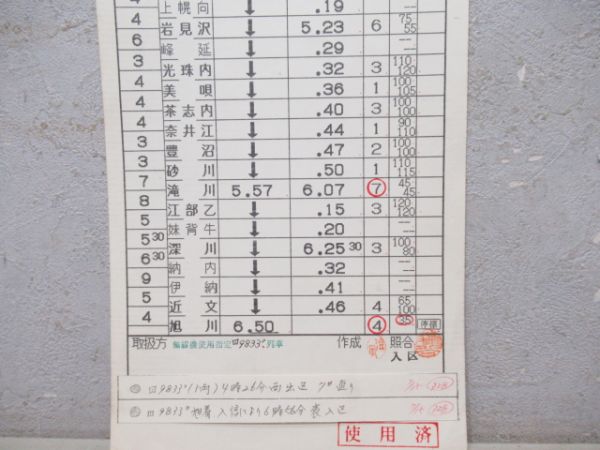 4 上幌向 ↓ .19 --
4 岩見沢 ↓ 5.23 6 75 55
6 峰延 ↓ .29 --
3 光珠内 ↓ .32 3 110 120
4 美唄 ↓ .36 1 100 105
4 茶志内 ↓ .40 3 100 100
3 奈井江 ↓ .44 1 90 110
3 豊沼 ↓ .47 2 100 100
7 砂川 ↓ .50 1 110 115
8 滝川 5.57 6.07 7 45 45
5 江部乙 ↓ .15 3 120 120
5 30 妹背牛 ↓ .20 --
6 30 深川 ↓ 6.25 30 3 100 80
9 納内 ↓ .32 --
5 伊納 ↓ .41 --
4 近文 ↓ .46 4 65 100
旭川 6.50 4 35
取扱方 回9833 列車 作成 照合
入区
回9833 (1両) 4時26分
回9833 旭着 6時56分 入区
使用済